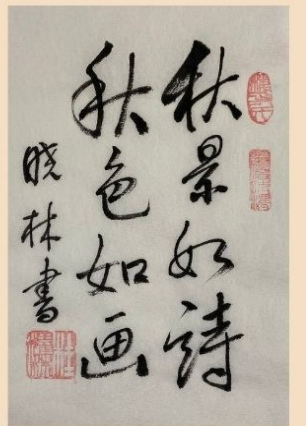 秋景如詩
秋色如画
晓林書